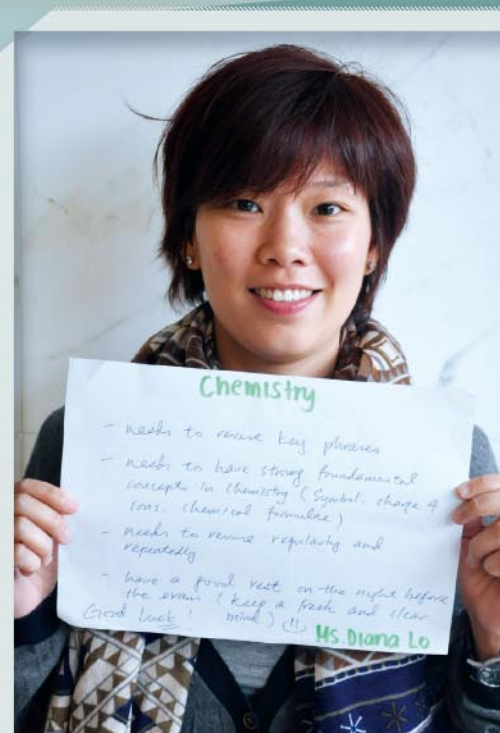 Chemistry
- needs to revise key phrases
- needs to have strong foundamental
concepts in Chemistry (Symbol, charge of
ions, chemical formulae)
- needs to revise regularly and
repeatedly
- have a good rest on the night before
the exam (keep a fresh and clear
Good luck! mind) ☺
Ms. Diana Lo